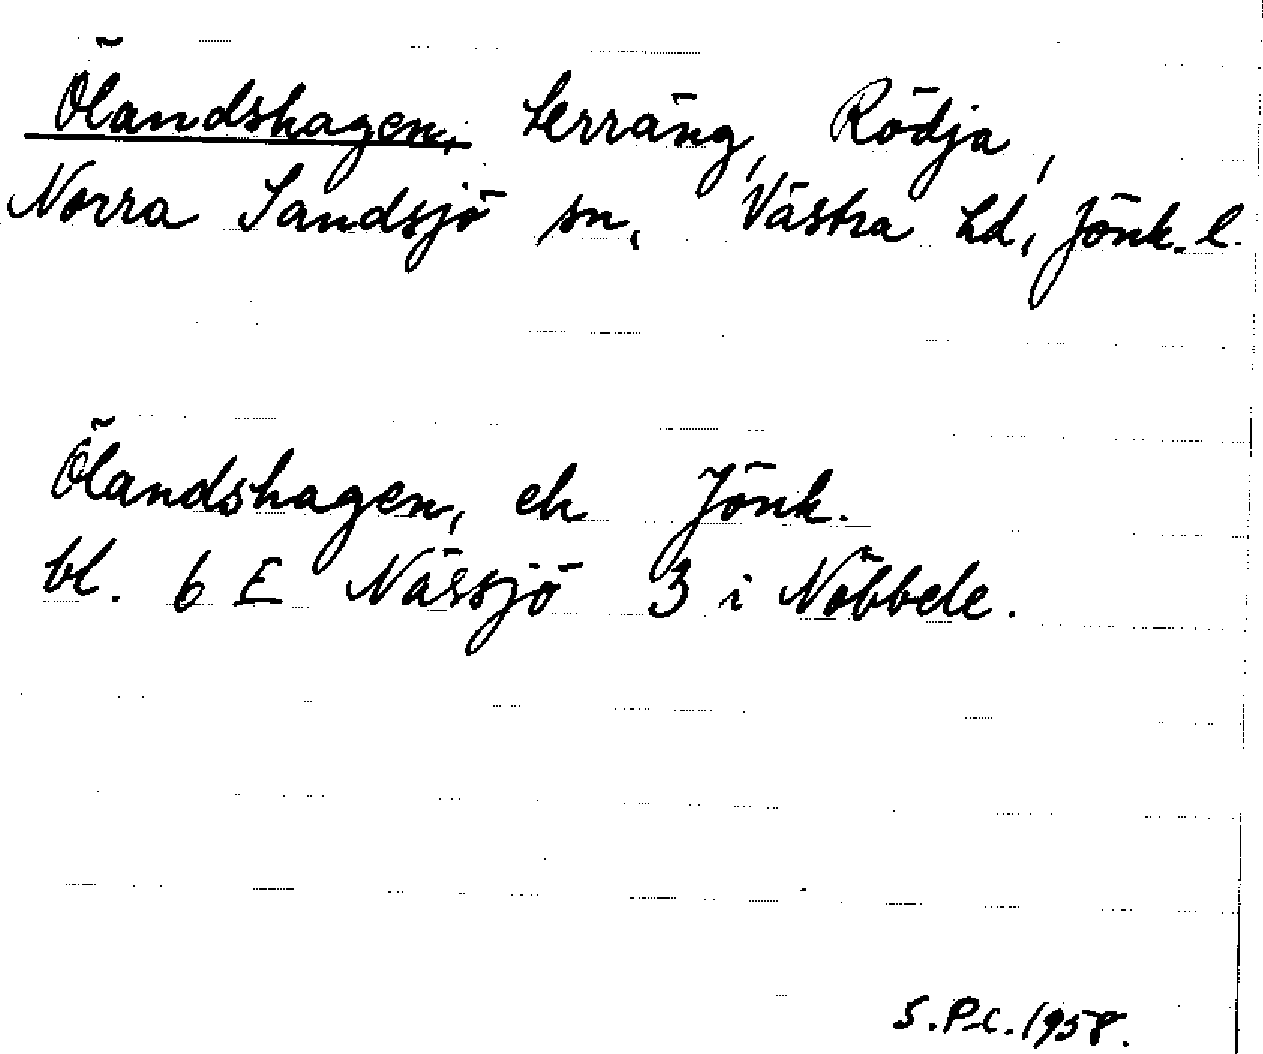 Ölandshagen, terräng, Rödja,
Norra Sandsjö sn, Västra hd, Jönk. l.
Ölandshagen, ek Jönk.
bl. 6 E Nässjö 3 i Nöbbele.
S.P.C. 1958.